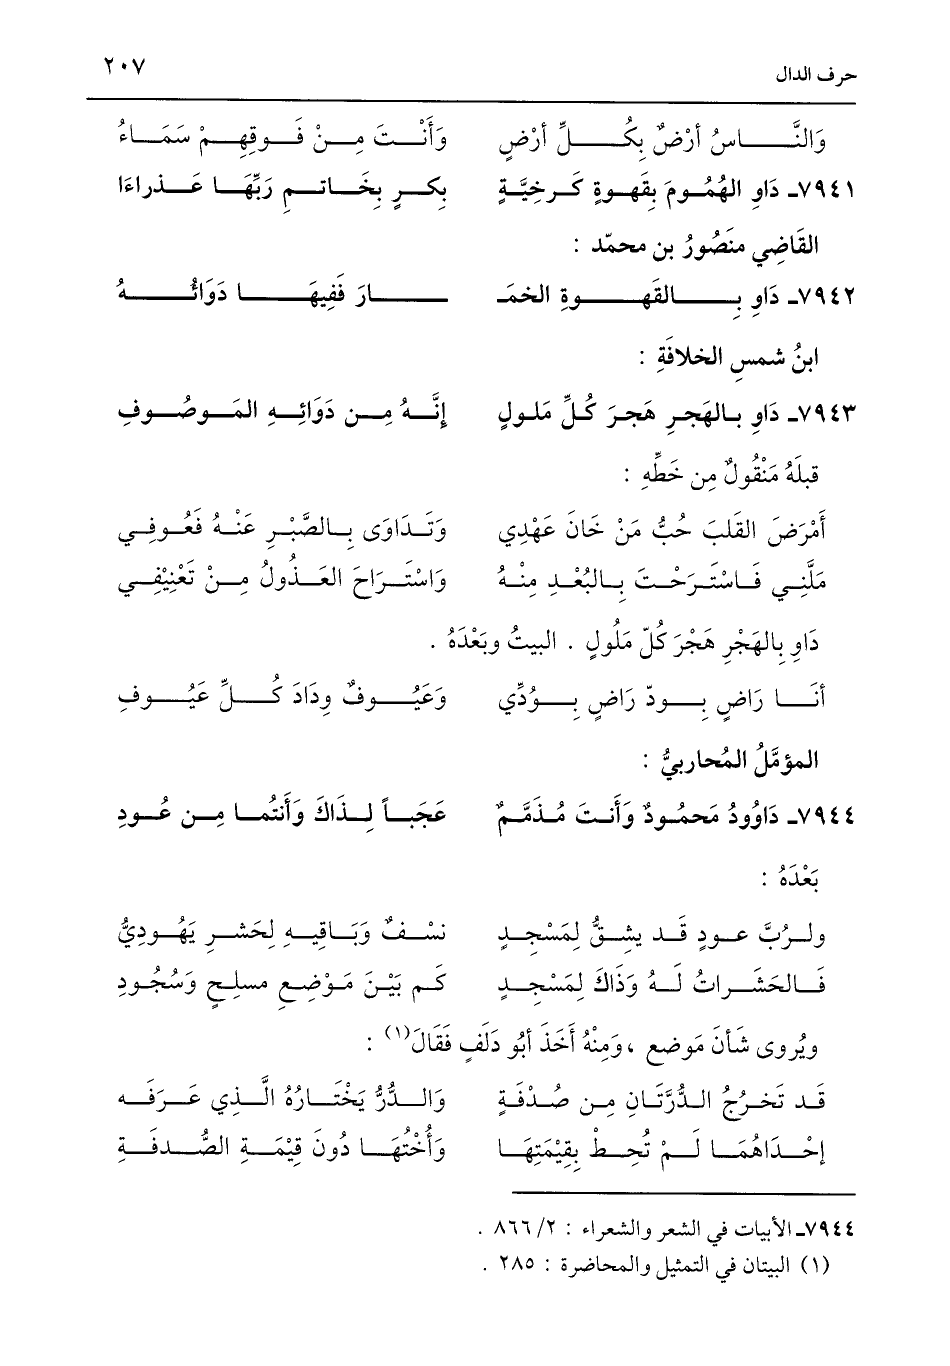 حرف الدال ٢٠٧
وَالنَّاسُ أرْضٌ بِكُلِّ أرْضٍ وَأَنْتَ مِنْ فَوقِهِمْ سَمَاءُ
٧٩٤١ـ دَاوِ الهُمُومَ بِقَهوةٍ كَرخِيَّةٍ بِكرٍ بِخَاتمِ رَبِّهَا عَذراءَا
القَاضِي منصُورُ بن محمّد :
٧٩٤٢ـ دَاوِ بِالقَهوةِ الخمَـ ـارَ فَفِيهَا دَوَائُهُ
ابنُ شمسِ الخلافَةِ :
٧٩٤٣ـ دَاوِ بالهَجرِ هَجرَ كُلِّ مَلولٍ إنَّهُ مِن دَوَائِهِ المَوصُوفِ
قبلَهُ مَنْقُولٌ مِن خَطِّهِ :
أَمْرَضَ القَلبَ حُبُّ مَنْ خَانَ عَهْدِي وَتَدَاوَى بِالصَّبْرِ عَنْهُ فَعُوفِي
مَلَّنِي فَاسْتَرَحْتَ بِالبُعْدِ مِنْهُ وَاسْتَرَاحَ العَذُولُ مِنْ تَعْنِيْفِي
دَاوِ بِالهَجْرِ هَجْرَ كُلّ مَلُولٍ . البيتُ وبَعْدَهُ .
أنَا رَاضٍ بِودّ رَاضٍ بِوُدِّي وَعَيُوفٌ وِدَادَ كُلِّ عَيُوفِ
المؤمَّلُ المُحاربيُّ :
٧٩٤٤ـ دَاوُودُ مَحمُودٌ وَأَنتَ مُذمَّمٌ عَجَباً لِذَاكَ وَأَنتُما مِن عُودِ
بَعْدَهُ :
ولرُبَّ عودٍ قَد يشِقُّ لِمَسْجِدٍ نسْفٌ وَبَاقيهِ لِحَشرِ يَهُوديُّ
فَالحَشَراتُ لَهُ وَذَاكَ لِمَسْجِدٍ كَم بَيْنَ مَوْضِعِ مسلحٍ وَسُجُودِ
ويُروى شَأنَ مَوضع ، وَمِنْهُ أَخَذَ أبُو دَلَفٍ فَقَالَ(١) :
قَد تَخرُجُ الدُّرَّتَانِ مِن صُدْفَةٍ وَالدُّرُّ يَخْتَارُهُ الَّذِي عَرَفَه
إحْدَاهُمَا لَمْ تُحِطْ بِقِيْمَتِهَا وَأُخْتُهَا دُونَ قِيْمَةِ الصُّدفَةِ
٧٩٤٤ـ الأبيات في الشعر والشعراء : ٢/ ٨٦٦ .
(١) البيتان في التمثيل والمحاضرة : ٢٨٥ .